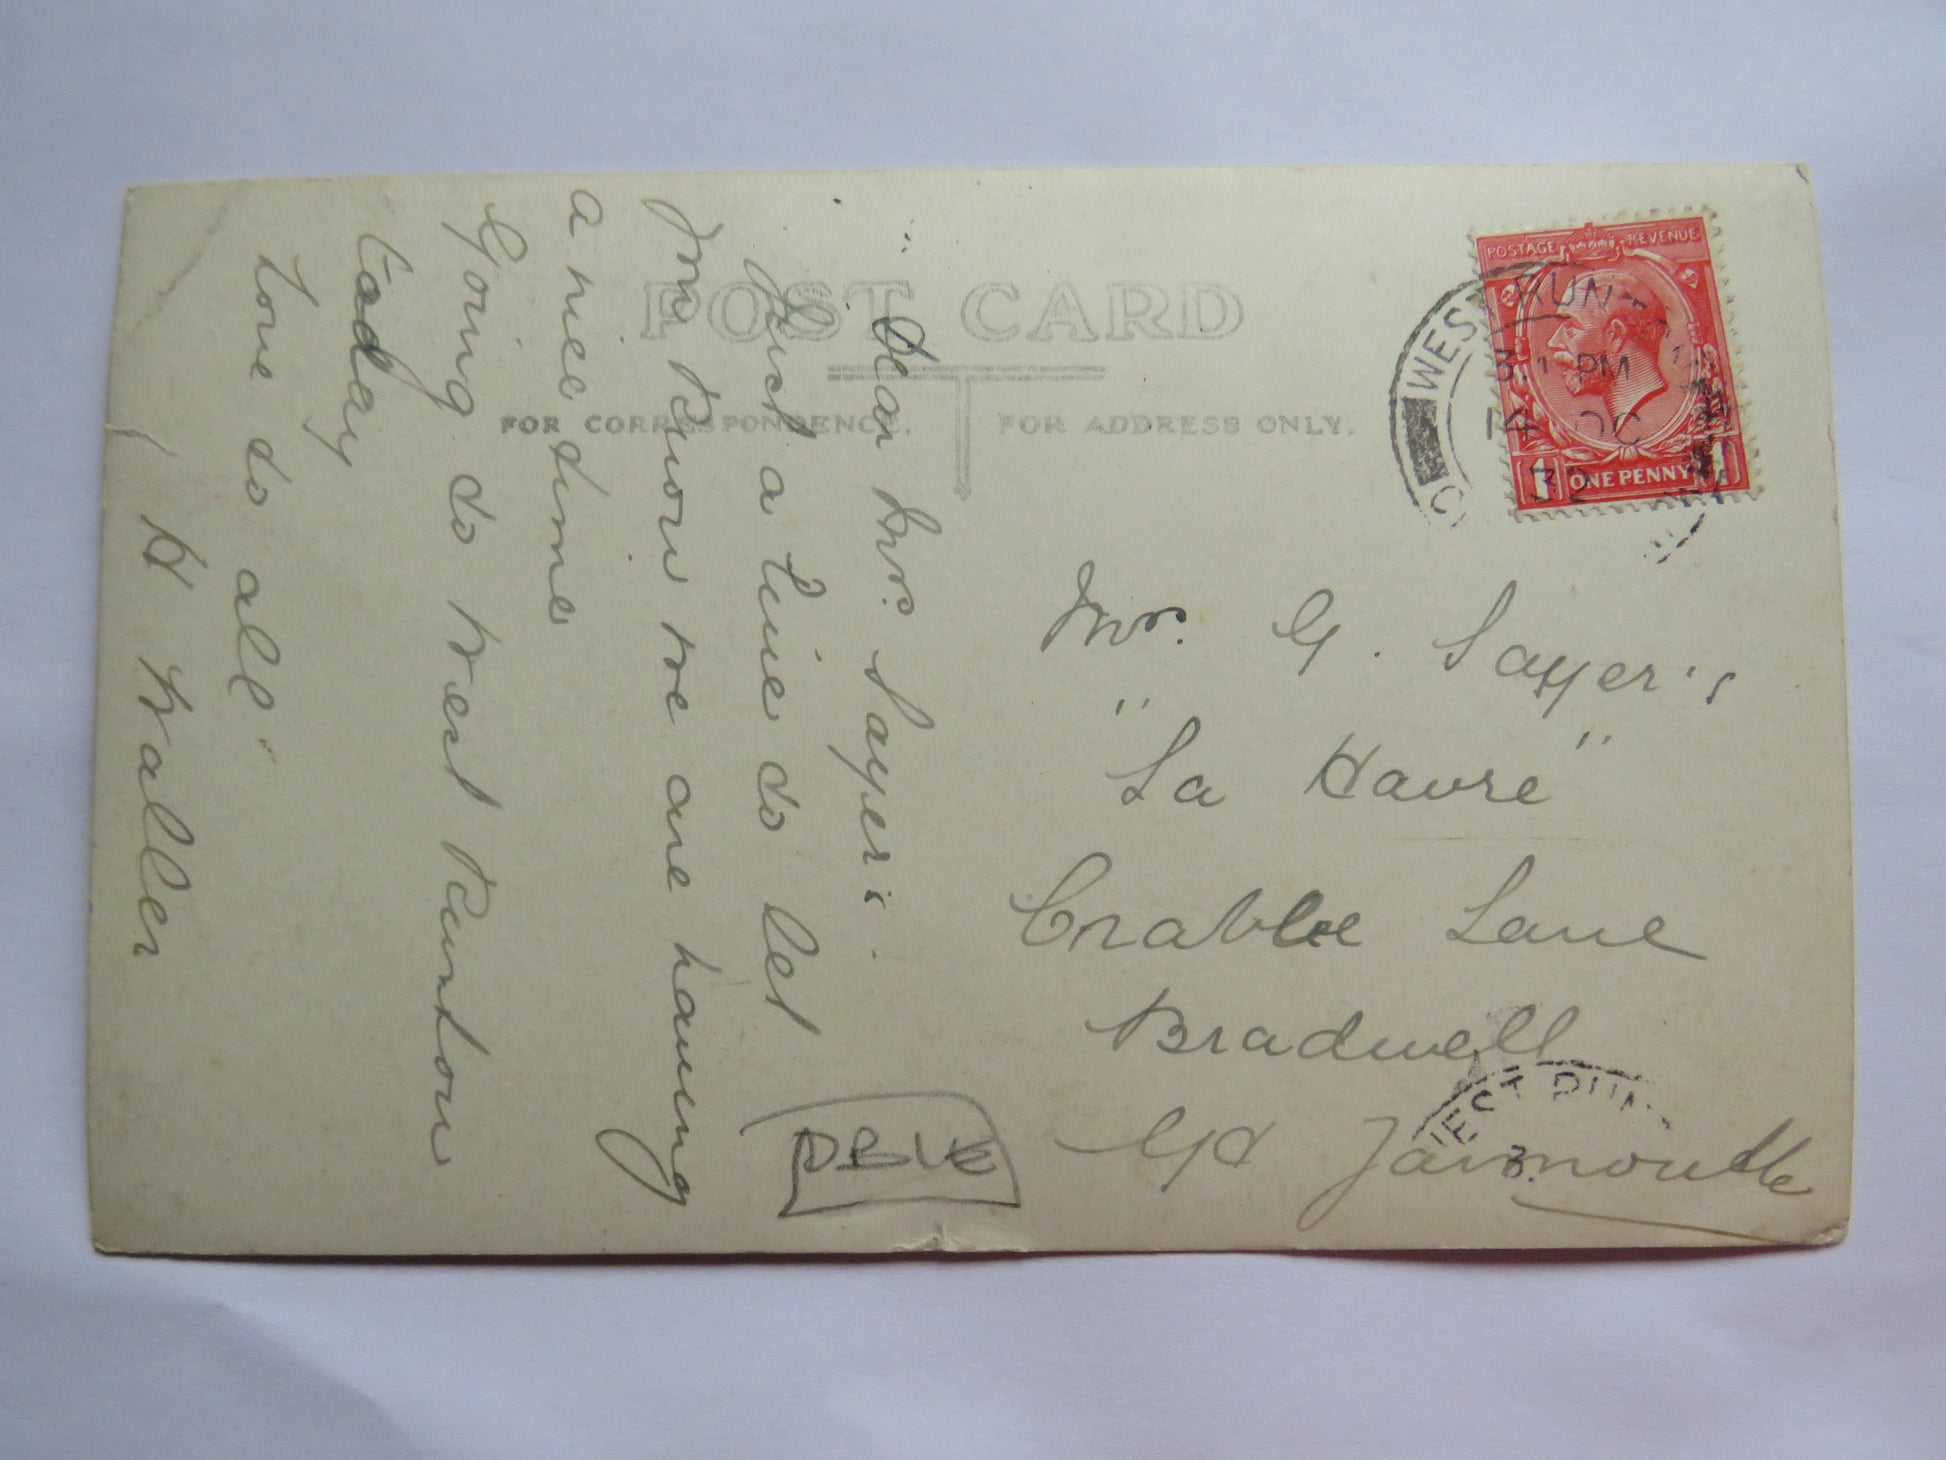 POST CARD
FOR CORRESPONDENCE.
FOR ADDRESS ONLY.
Dear Mrs. Sayer's.
Just a line to let
you know we are having
a nice time
Going to West Runton
today
Love to all
H Waller
POSTAGE REVENUE
1 ONE PENNY 1
WEST RUN
PM
14 OC
32
Mrs. G. Sayer's
"La Havre"
Crabbe Lane
Bradwell
Gt Yarmouth
WEST RUN
3.